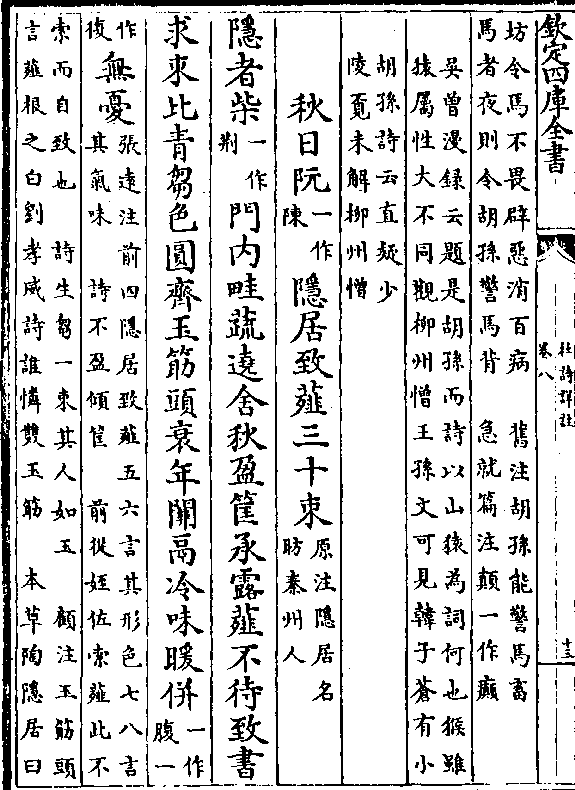 欽定四庫全書
杜詩詳註
卷八
十三
坊令馬不畏辟惡消百病　舊注胡孫能警馬畜
馬者夜則令胡孫警馬背　急就篇注顛一作癲
吳曾漫録云題是胡孫而詩以山猿為詞何也猴雖
猿屬性大不同觀柳州憎王孫文可見韓子蒼有小
胡孫詩云直疑少
陵覓未解柳州憎
秋日阮一作
陳隱居致薤三十束原注隱居名
昉秦州人
隱者柴一作
荆門内畦蔬遶舍秋盈筐承露薤不待致書
求束比青芻色圓齊玉筯頭衰年關鬲冷味暖併一作
腹一
作
復無憂張遠注前四隱居致薤五六言其形色七八言
其氣味　詩不盈傾筐　前從姪佐索薤此不
索而自致也　詩生芻一束其人如玉　顧注玉筯頭
言薤根之白劉孝威詩誰憐雙玉筯　本草陶隱居曰